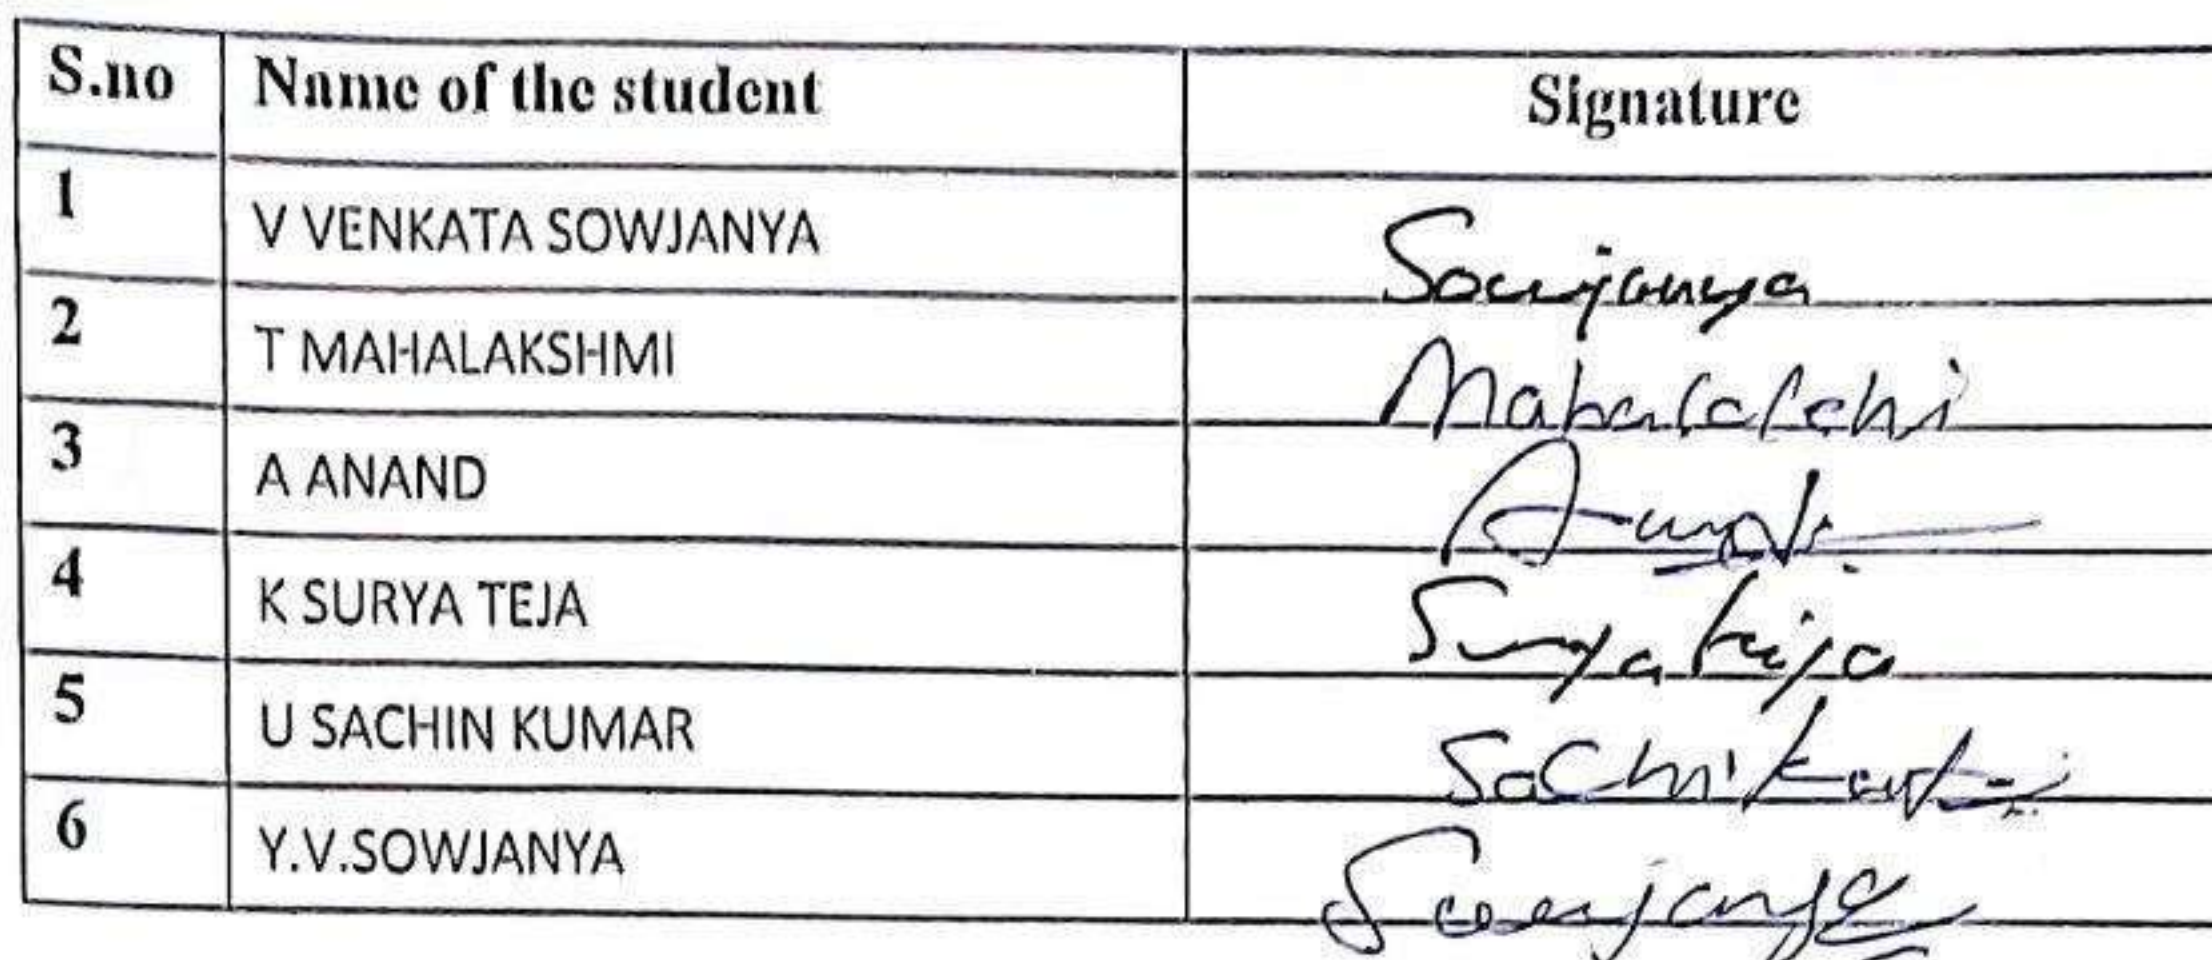 S.no Name of the student Signature
1 V VENKATA SOWJANYA Sowjanya
2 T MAHALAKSHMI
3 A ANAND Anand
4 K SURYA TEJA Surya teja
5 U SACHIN KUMAR
6 Y.V.SOWJANYA Sowjanya